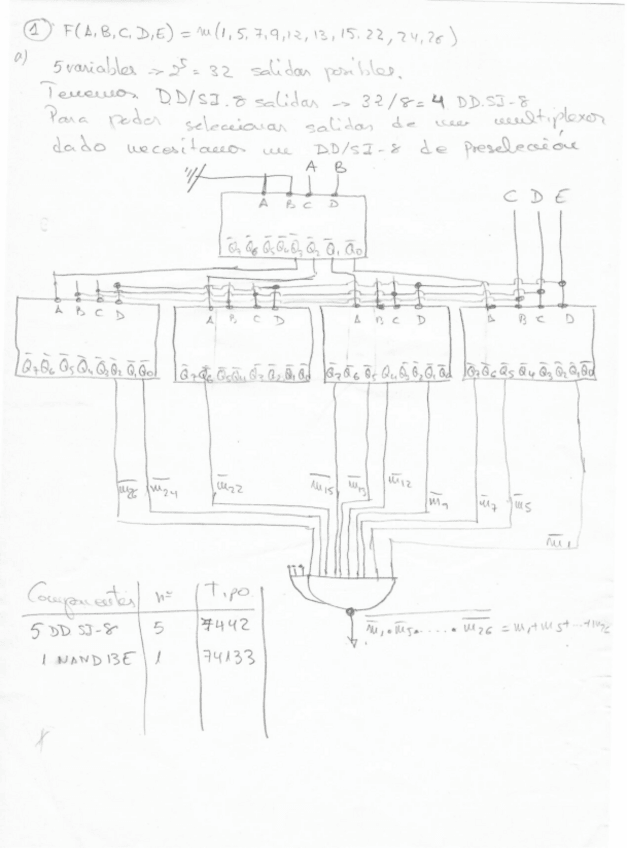 ① F(A,B,C,D,E) = m(1,5,7,9,12,13,15,22,24,26)
a)
5 variables → 2⁵ = 32 salidas posibles.
Tenemos DD/SI-8 salidas → 32/8 = 4 DD.SI-8
Para poder seleccionar salidas de un multiplexor
dado necesitamos un DD/SI-8 de preselección
A B
A B C D
C D E
Q̅7 Q̅6 Q̅5 Q̅4 Q̅3 Q̅2 Q̅1 Q̅0
A B C D A B C D A B C D A B C D
Q̅7 Q̅6 Q̅5 Q̅4 Q̅3 Q̅2 Q̅1 Q̅0 Q̅7 Q̅6 Q̅5 Q̅4 Q̅3 Q̅2 Q̅1 Q̅0 Q̅7 Q̅6 Q̅5 Q̅4 Q̅3 Q̅2 Q̅1 Q̅0 Q̅7 Q̅6 Q̅5 Q̅4 Q̅3 Q̅2 Q̅1 Q̅0
m̅26 m̅24 m̅22 m̅15 m̅13 m̅12 m̅9 m̅7 m̅5
m̅1
Componentes nº Tipo
5 DD SI-8 5 7442
1 NAND 13E 1 74133
m̅1 • m̅5 • ..... • m̅26 = m1 + m5 + ... + m26